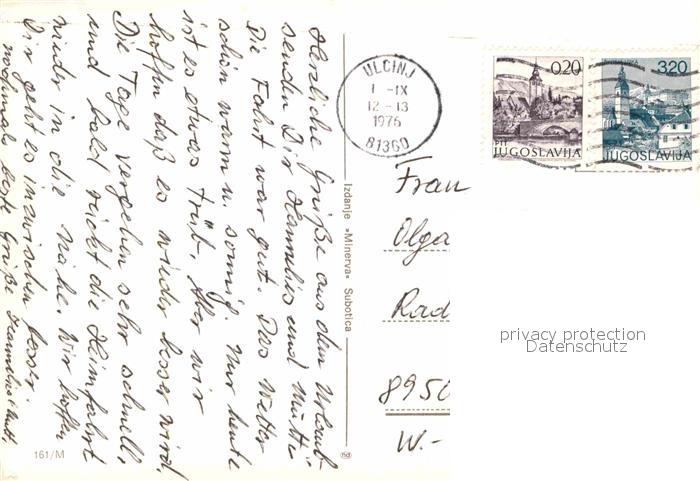 Herzliche Grüße aus dem Urlaub
senden Dir Hannlies und Mutti
Die Fahrt war gut. Das Wetter
schön warm u. sonnig. Nur heute
ist es etwas trüb. Aber wir
hoffen daß es wieder besser wird.
Die Tage vergehen sehr schnell,
und bald rückt die Heimfahrt
wieder in die Nähe. Wir hoffen
Dir geht es inzwischen besser.
nochmals beste Grüße
161/M
Izdanje »Minerva« Subotica
ULCINJ
1 -IX
12 - 13
1976
81360
0,20
PTT
JUGOSLAVIJA
3,20
JUGOSLAVIJA
Frau
Olga
Rad
8950
W.-
privacy protection
Datenschutz